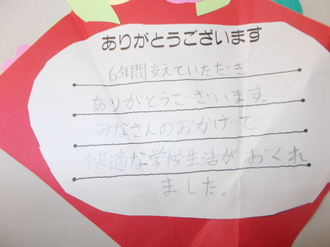 ありがとうございます
6年間支えていただき
ありがとうございます。
みなさんのおかげで
快適な学校生活が おくれ
ました。